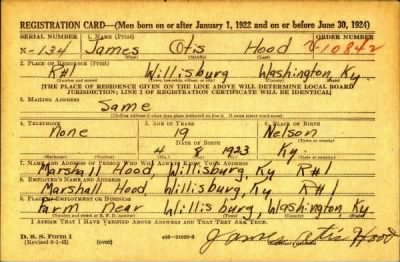 REGISTRATION CARD—(Men born on or after January 1, 1922 and on or before June 30, 1924)
SERIAL NUMBER 1. NAME (Print) ORDER NUMBER
N-134 James Otis Hood N-10842
(First) (Middle) (Last)
2. PLACE OF RESIDENCE (Print)
R#1 Willisburg Washington, Ky.
(Number and street) (Town, township, village, or city) (County) (State)
[THE PLACE OF RESIDENCE GIVEN ON THE LINE ABOVE WILL DETERMINE LOCAL BOARD
JURISDICTION; LINE 2 OF REGISTRATION CERTIFICATE WILL BE IDENTICAL]
3. MAILING ADDRESS
Same
(Mailing address if other than place indicated on line 2. If same insert word same)
4. TELEPHONE 5. AGE IN YEARS 6. PLACE OF BIRTH
None 19 Nelson
DATE OF BIRTH (Town or county)
4 8 1923 Ky.
(Exchange) (Number) (Mo.) (Day) (Yr.) (State or country)
7. NAME AND ADDRESS OF PERSON WHO WILL ALWAYS KNOW YOUR ADDRESS
Marshall Hood, Willisburg, Ky R#1
8. EMPLOYER'S NAME AND ADDRESS
Marshall Hood, Willisburg, Ky R#1
9. PLACE OF EMPLOYMENT OR BUSINESS
Farm near Willisburg, Washington, Ky
(Number and street or R. F. D. number) (Town) (County) (State)
I AFFIRM THAT I HAVE VERIFIED ABOVE ANSWERS AND THAT THEY ARE TRUE.
D. S. S. Form 1
(Revised 6-1-42) (over) James Otis Hood